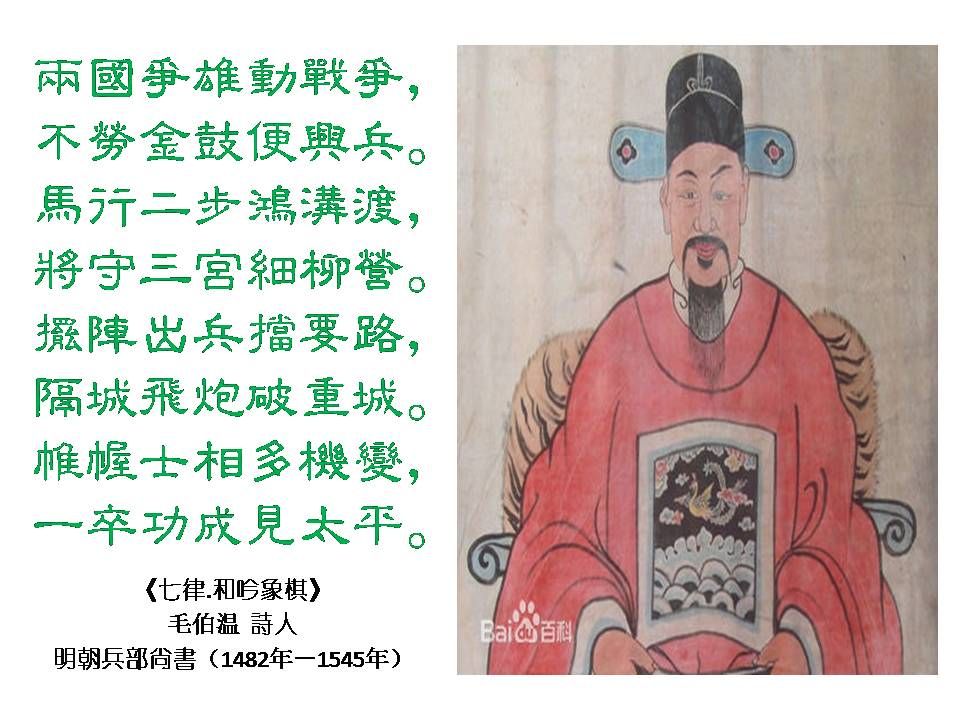 兩國爭雄動戰爭，
不勞金鼓便興兵。
馬行二步鴻溝渡，
將守三宮細柳營。
擺陣出兵擋要路，
隔城飛炮破重城。
帷幄士相多機變，
一卒功成見太平。
《七律.和吟象棋》
毛伯温 詩人
明朝兵部尚書（1482年－1545年）
Bai百科